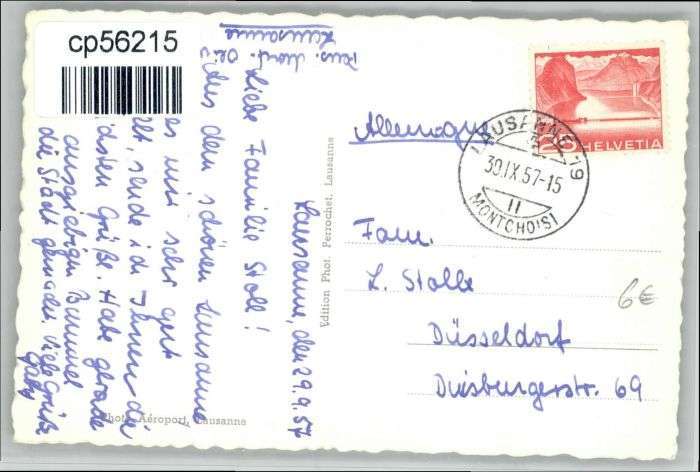 cp56215
Pens. Mont. Oli
Lausanne
Lausanne, den 29.9.57
Liebe Familie Stoll!
Aus dem schönen Lausanne
es mir sehr gut
sende ich Ihnen die
Grüße. Habe gerade
ausgiebigen Bummel
die Stadt gemacht. Viele Grüße
Gaby
Edition Phot. Perrochet, Lausanne
Phot. Aéroport, Lausanne
Allemagne
LAUSANNE 19
30.IX.57-15
II
MONTCHOISI
20 HELVETIA
Fam.
L. Stolle
Düsseldorf
Duisburgerstr. 69
6€